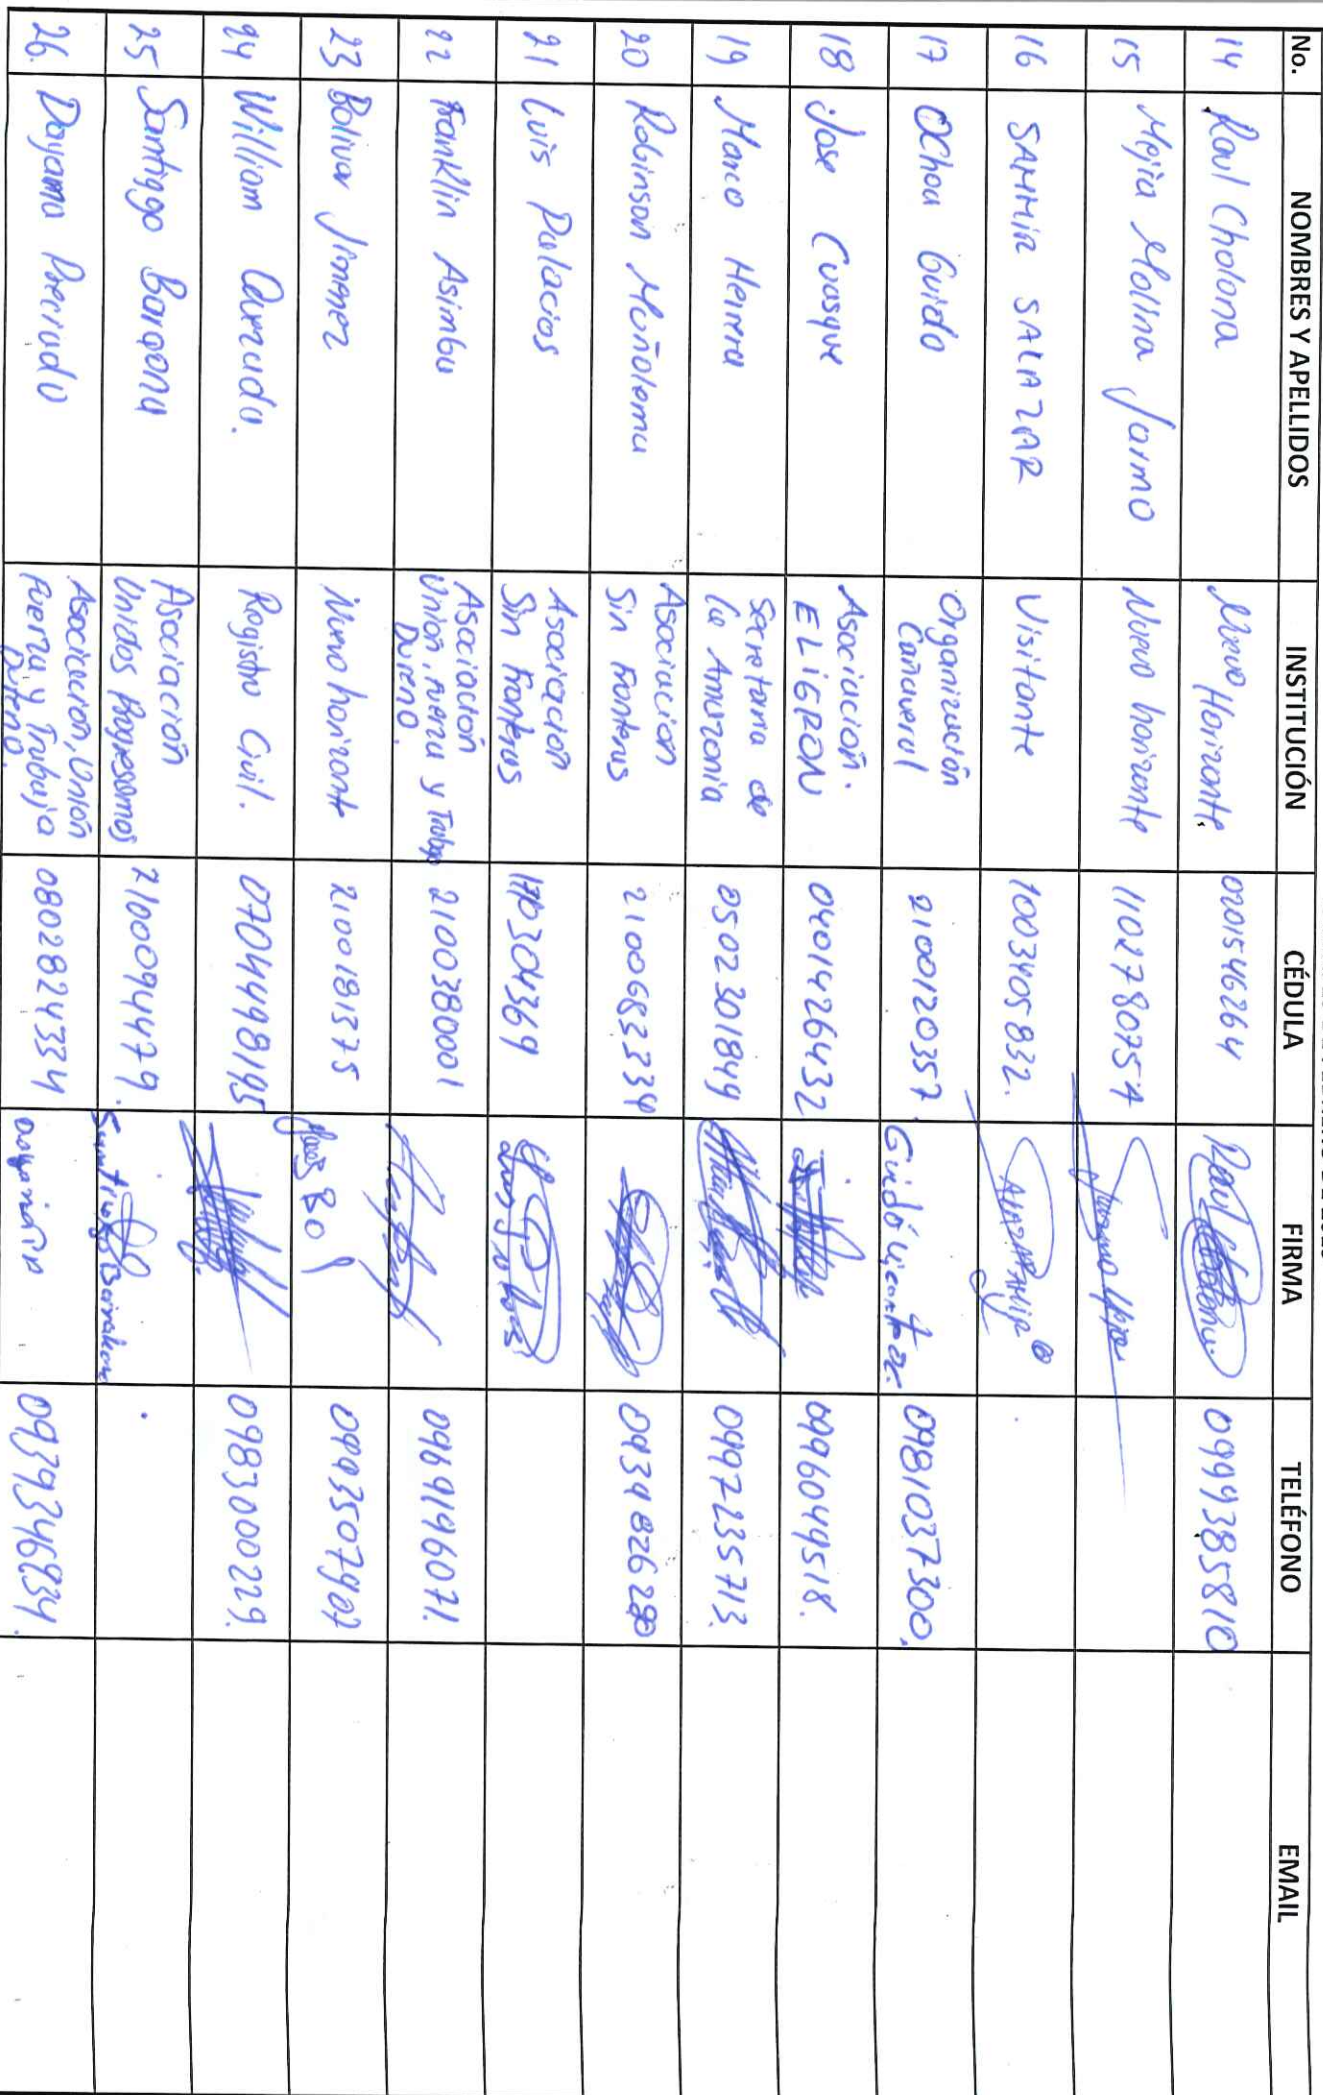 No. NOMBRES Y APELLIDOS INSTITUCIÓN CÉDULA FIRMA TELÉFONO EMAIL
14 Raul Cholona Nuevo Horizonte 0201546264 0999385810
15 Mejia Molina Jarmo Nuevo horizonte 1102778075
16 SAMMIR SALAZAR Visitante 1003405832.
17 Ochoa Guido Organización
Cañaveral 2100120357 Guido 0981037300.
18 Jose Cuasque Asociación.
ELIGRON 0401426432 0996049518.
19 Marco Herrera Secretaria de
la Amazonia 0502301849 0997235713.
20 Robinson Muñolema Asociacion
Sin Fronteras 2100683334 0934826280
21 Luis Palacios Asociación
Sin Fronteras 170304369
22 Franklin Asimbu Asociación
Unión, fuerza y Trabajo
Dureno. 2100380001 0969196071.
23 Bolivar Jimenez Nuevo horizonte 2100181375 0993507907
24 William Quezada. Registro Civil. 0704498195 0983000229.
25 Santiago Baragona Asociación
Unidos Progresemos 2100094479.
26. Dayama Preciado Asociacion, Unión
Fuerza y Trabajo
Dureno. 0802824334 0939346934.